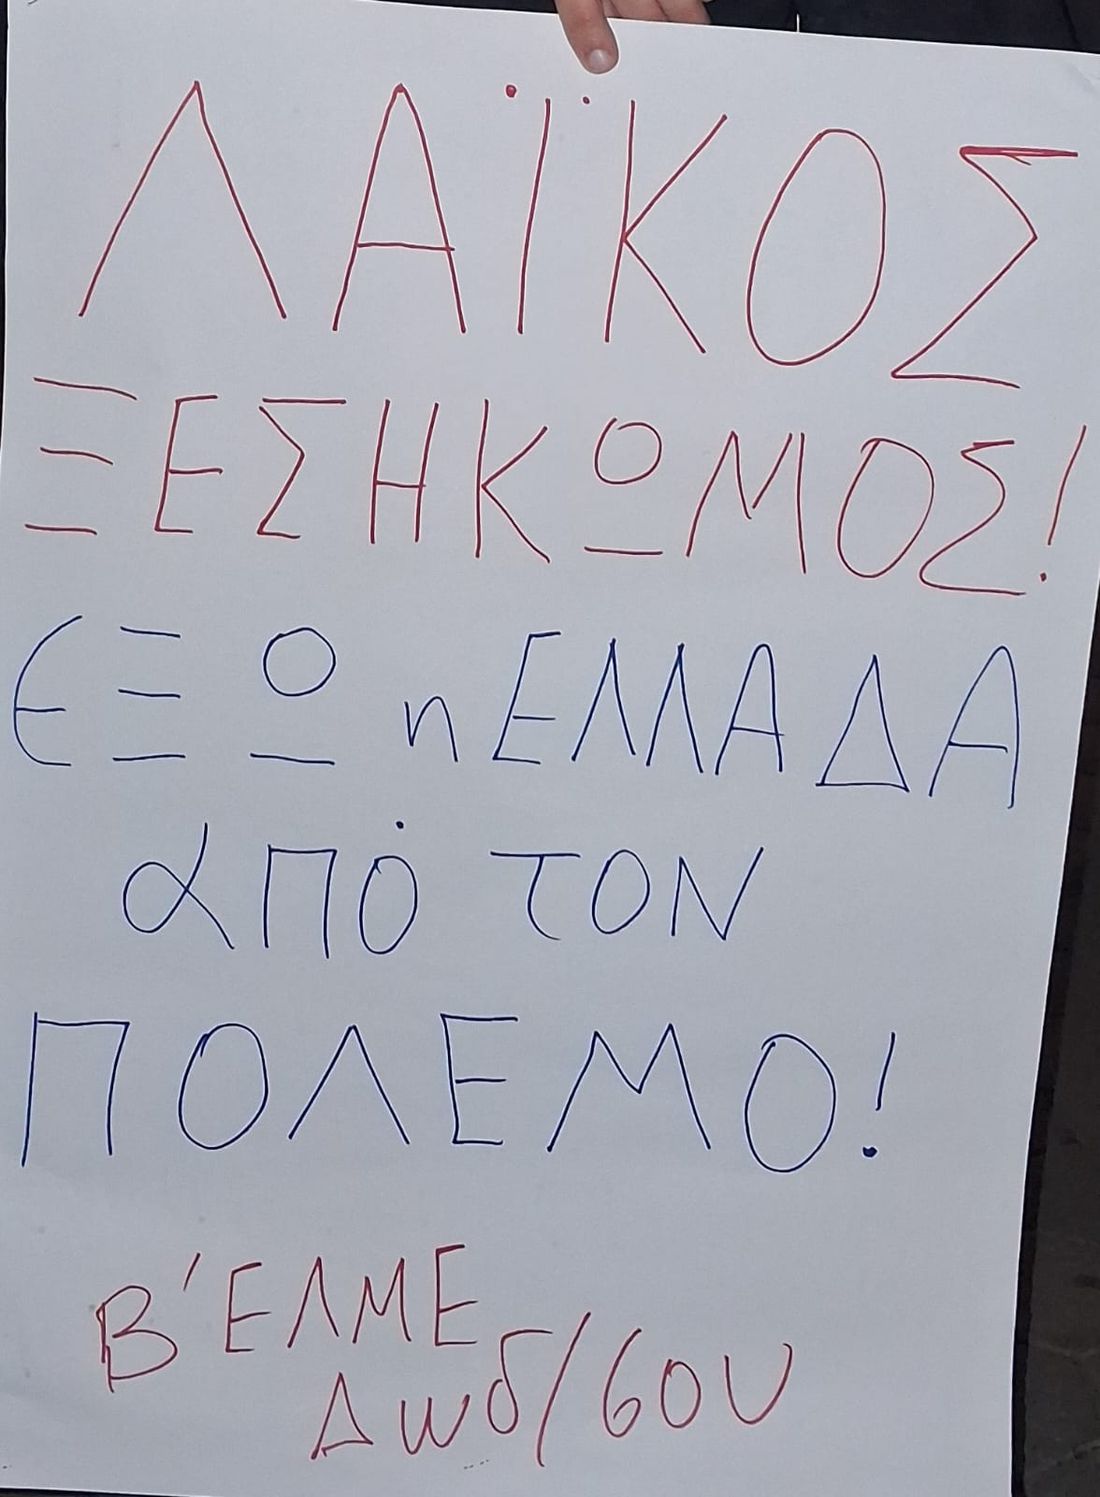 ΛΑΪΚΟΣ
ΞΕΣΗΚΩΜΟΣ!
ΕΞΩ η ΕΛΛΑΔΑ
αΠΌ ΤΟΝ
ΠΟΛΕΜΟ!
Β' ΕΛΜΕ
Δωδ/σου